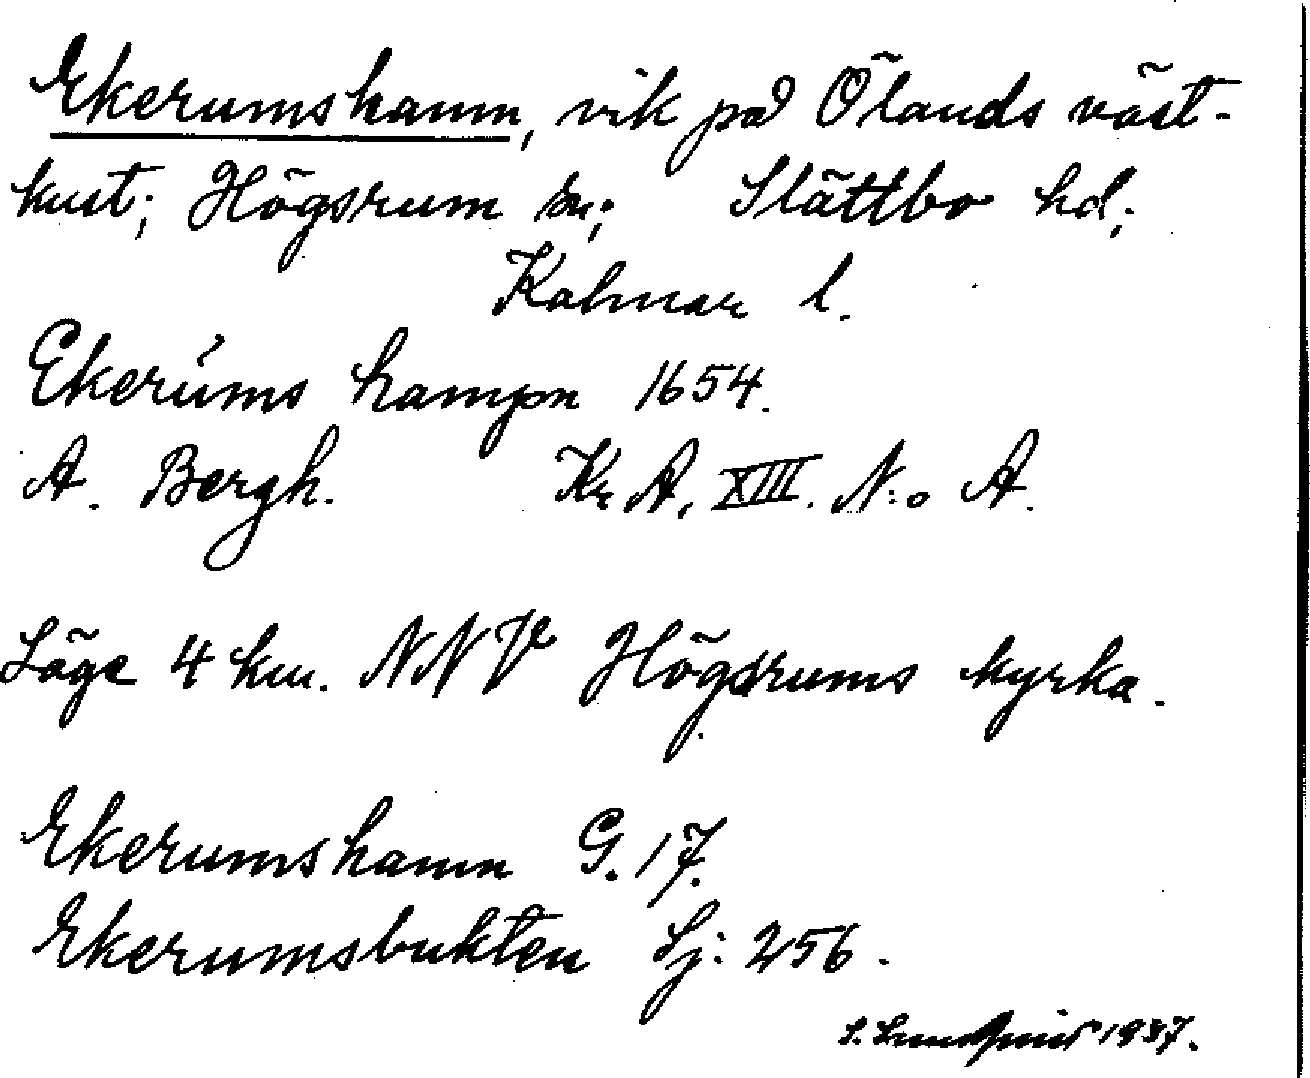 Ekerumshamn, vik på Ölands väst-
kust; Högsrum sn; Slättbo hd;
Kalmar l.
Ekerúms hampn 1654.
A. Bergh. Kr A, XIII. N:o A.
Läge 4 km. NNV Högsrums kyrka.
Ekerumshamn G. 17.
Ekerumsbukten Sj: 256.
S. Lundqvist 1937.